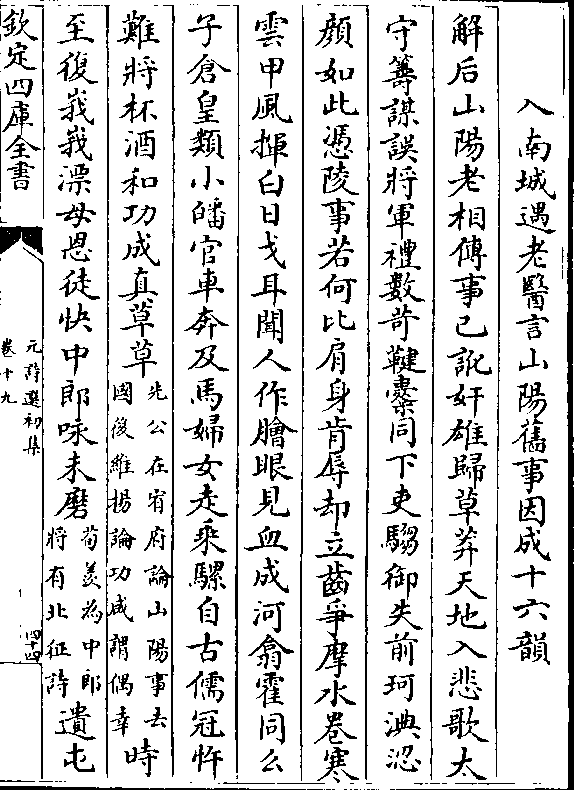 入南城遇老醫言山陽舊事因成十六韻
解后山陽老相傳事已訛奸雄歸草莽天地入悲歌太
守籌謀誤將軍禮數苛鞬櫜同下吏騶御失前珂淟涊
顔如此憑陵事若何比肩身肯辱却立齒爭摩水卷寒
雲甲風揮白日戈耳聞人作膾眼見血成河翕霍同么
子倉皇類小皤官車奔及馬婦女走乘騾自古儒冠忤
難將杯酒和功成真草草先公在宥府論山陽事去國後維揚論功咸謂偶幸時
至復峩峩漂母恩徒快中郎咏未磨荀羨為中郎將有北征詩遺屯
欽定四庫全書
元詩選初集
卷十九
四十四